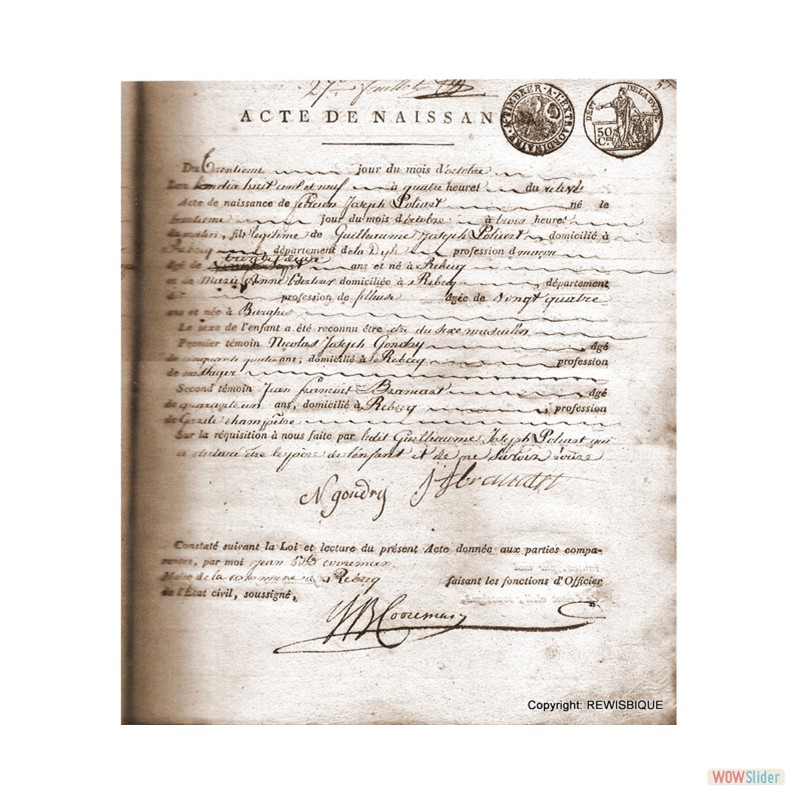 27 Juillet
5
ACTE DE NAISSAN
A TIMBRER A L'EXTRAORDINAIRE
DEPT DE LA DYLE
50 C.EN
Du Trentieme jour du mois d'octobre
L'an dix huit cent et neuf à quatre heures du relevé
Acte de naissance de Joseph Poliart né le
trentieme jour du mois d'octobre à trois heures
du matin, fils legitime de Guilleaume Joseph Poliart domicilié à
Rebecq, département de la Dyle profession de maçon
âgé de ans et né à Rebecq
et de Marie Anne domiciliée à Rebecq, département
d profession de fileuse âgée de vingt quatre
ans et née à Burghes
Le sexe de l'enfant a été reconnu être du sexe masculin
Premier témoin Nicolas Joseph Gondry âgé
de cinquante quatre ans, domicilié à Rebecq profession
de messager
Second témoin Jean François Bramart âgé
de quarante un ans, domicilié à Rebecq; profession
de Garde champêtre
Sur la réquisition à nous faite par ledit Guilleaume Joseph Poliart qui
a déclaré être le père de l'enfant et de ne savoir écrire
N gondry
Constaté suivant la Loi et lecture du présent Acte donnée aux parties compa-
rantes, par moi jean Bte cooreman
Maire de la commune de Rebecq faisant les fonctions d'Officier
de l'État civil, soussigné,
JB Cooreman
Copyright: REWISBIQUE
WOWSlider